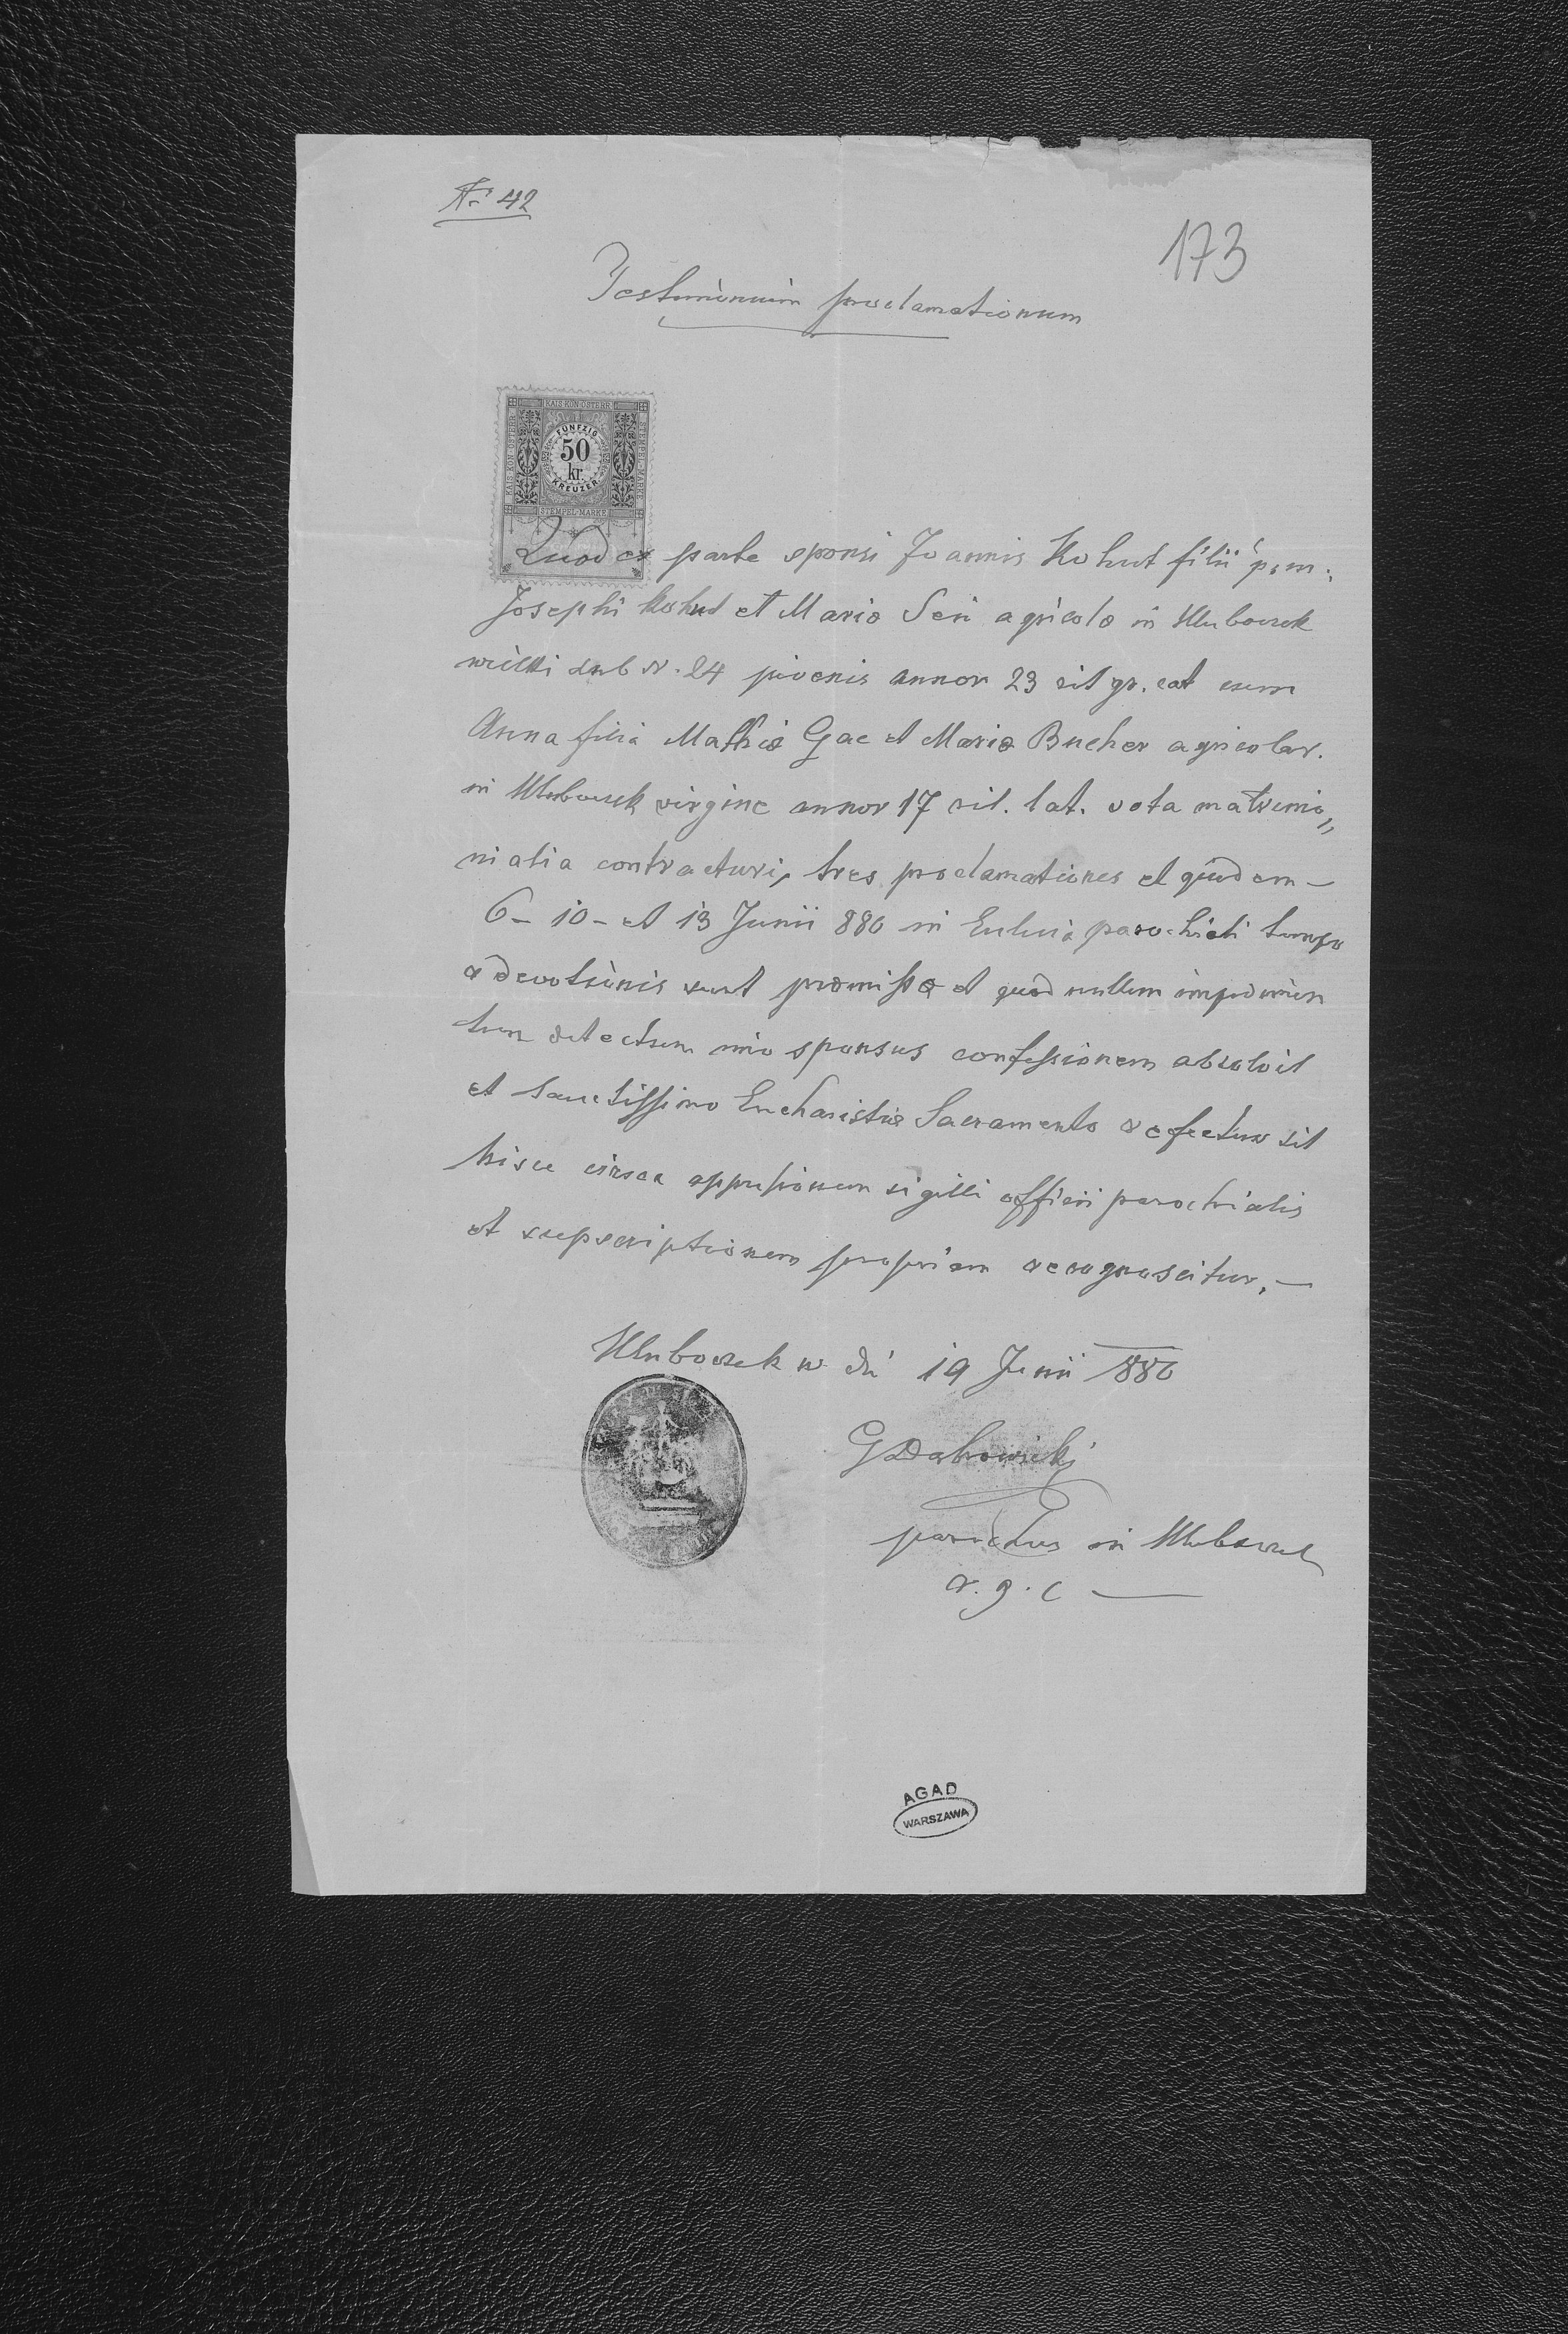 Nr 42
173
Testimonium proclamationum
KAIS. KÖN. ÖSTERR.
KAIS. KÖN. ÖSTERR.
STEMPEL-MARKE
FÜNFZIG
50
kr.
KREUZER
STEMPEL-MARKE
Quod ex parte sponsi Joannis Kohut filii p. m.
Josephi Kohut et Mariæ Seń agricolæ in Hluboczek
wielki sub N. 24 juvenis annor 23 rit gr. cat cum
Anna filia Mathiæ Gac et Mariæ Bucher agricolar.
in Hluboczek virgine annor 17 rit. lat. vota matrimo„
nialia contracturi, tres proclamationes et quidem —
6 – 10 – et 13 Junii 880 in Eclesia parochiali tempo
re devotionis sunt præmissæ et quod nullum impedimen
tum detectum imo sponsus confessionem absolvit
et Sanctissimo Eucharistiæ Sacramento refectus sit
hisce circa appressionem sigilli officii parochialis
et supscriptionem propriam recognoscitur. —
Hluboczek w. die 19 Junii 880
parochus in Hluboczek
r. g. c —
AGAD
WARSZAWA